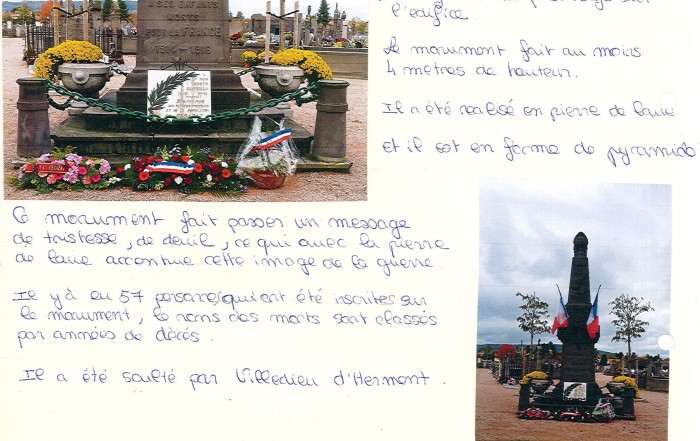 A SES ENFANTS
MORTS
POUR LA FRANCE
1914 - 1918
l'édifice.
Le monument fait au moins
4 mètres de hauteur.
Il a été réalisé en pierre de lave
et il est en forme de pyramide
Ce monument fait passer un message
de tristesse, de deuil, ce qui avec la pierre
de lave accentue cette image de la guerre
Il y à eu 57 personnes qui ont été inscrites sur
le monument, le noms des morts sont classés
par années de décés.
Il a été sculté par Villedieu d'Hermont.